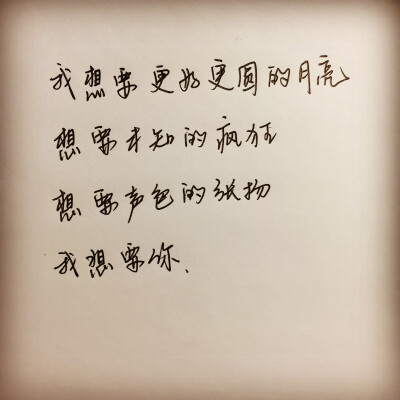 我想要更好更圆的月亮
想要未知的疯狂
想要声色的张扬
我想要你、